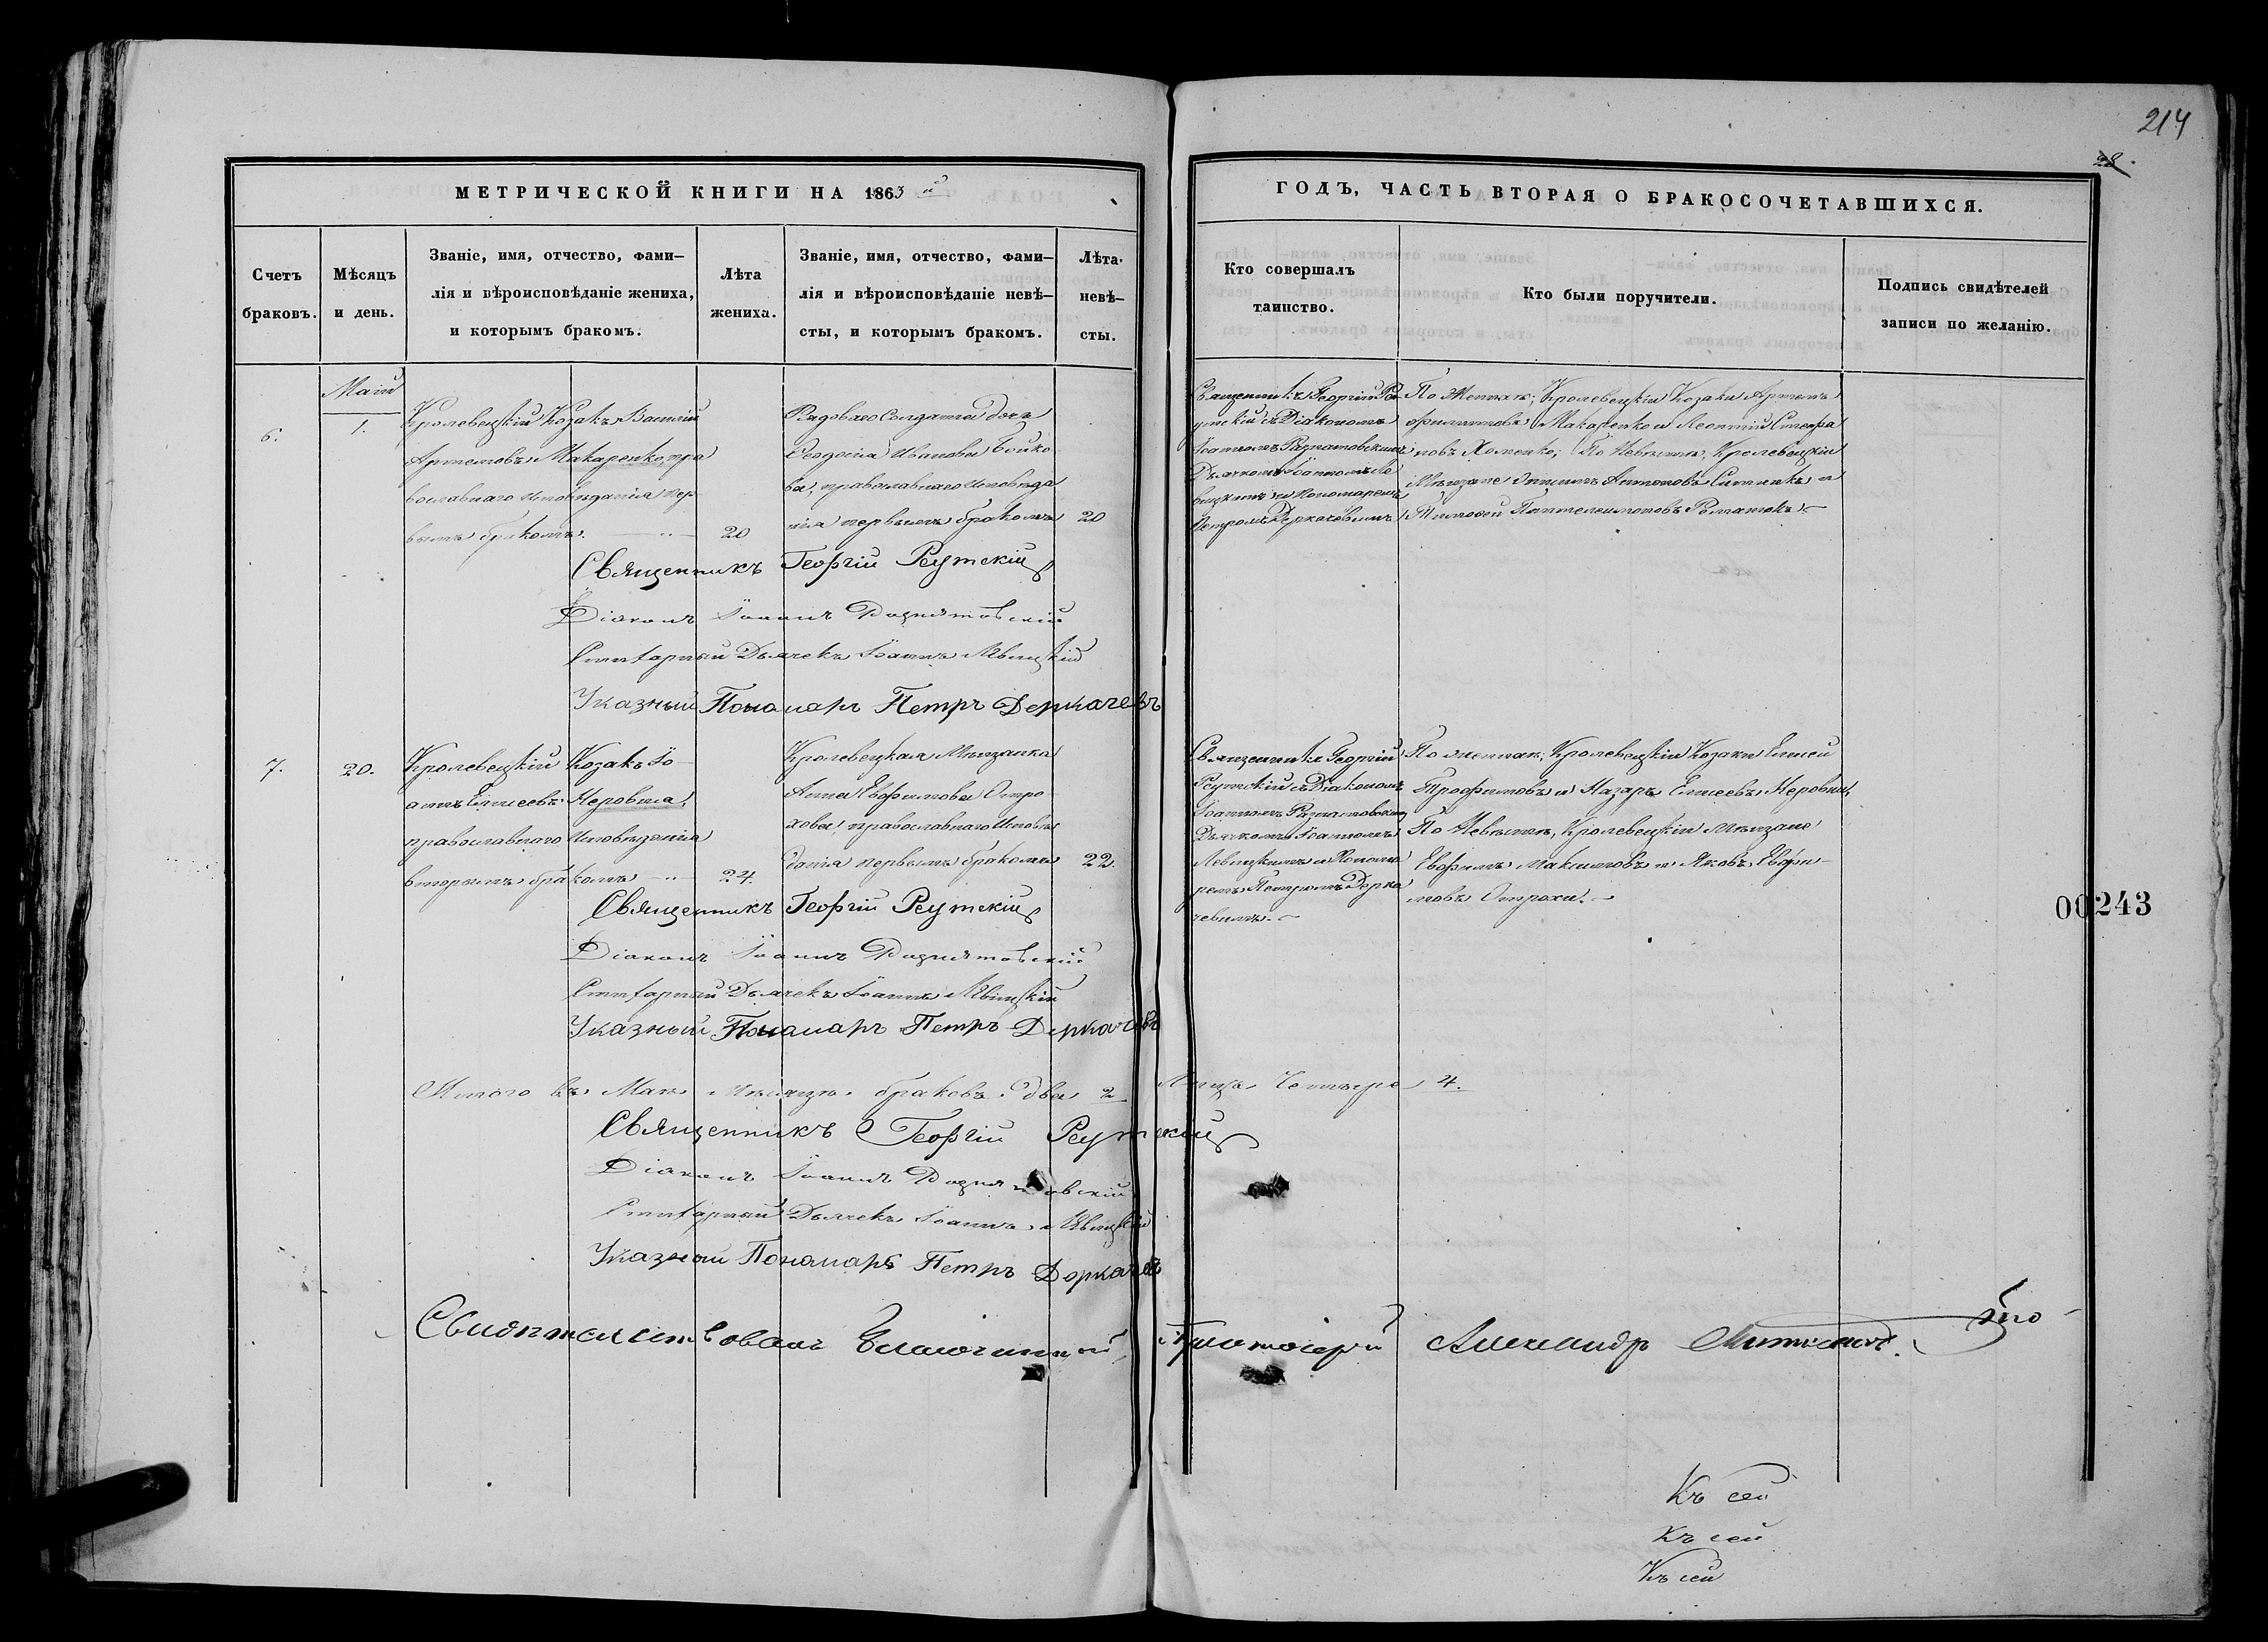 214
28.
МЕТРИЧЕСКОЙ КНИГИ НА 1863 й
ГОДЪ, ЧАСТЬ ВТОРАЯ О БРАКОСОЧЕТАВШИХСЯ.
Счетъ
браковъ.
Мѣсяцъ
и день.
Званіе, имя, отчество, фами–
лія и вѣроисповѣданіе жениха,
и которымъ бракомъ.
Лѣта
жениха.
Званіе, имя, отчество, фами–
лія и вѣроисповѣданіе невѣ–
сты, и которымъ бракомъ.
Лѣта
невѣ–
сты.
Кто совершалъ
таинство.
Кто были поручители.
Подпись свидѣтелей
записи по желанію.
6.
Маій
1.
Кролевецкій Козакъ Василій
Артемовъ Макаренко, пра
вославнаго исповѣданія пер
вымъ бракомъ.
20
Рядоваго Солдата дочь
Феодосія Иванова Бойко
ва, православнаго исповѣда
нія первымъ бракомъ
20
Священникъ Георгій Ре
утскій съ Діакономъ
Іоанномъ Разнатовскимъ
Дьячкомъ Іоанномъ Ле
вицкимъ и Пономаремъ
Петромъ Деркачевымъ
По Женихѣ; Кролевецкіи Козаки Артемъ
Филиповъ Макаренко и Леонтій Стефа
новъ Хоменко; По Невѣстѣ, Кролевецкіи
Мѣщане Антоновъ и
Тимофей Пантелеимоновъ
Священникъ Георгій Реутскій
Діаконъ Іоаннъ Разнатовскій
Дьячекъ Іоаннъ Левицкій
Указный Понамарь Петръ Деркачевъ
7.
20.
Кролевецкій Козакъ Іо
аннъ Елисеевъ Неровня,
православнаго исповѣданія
вторымъ бракомъ
24.
Кролевецкая Мѣщанка
Анна Евфимова Отро
хова, православнаго исповѣ
данія первымъ бракомъ
22.
Священникъ Георгій
Реутскій съ Діакономъ
Іоанномъ Разнатовскимъ
Дьячкомъ Іоанномъ
Левицкимъ и Понома
ремъ Петромъ Дерка
чевымъ.
По женихѣ; Кролевецкіи Козаки Елисей
Трофимовъ и Назаръ Елисеевъ Неровни,
По Невѣстѣ, Кролевецкіи Мѣщане
Евфимъ Максимовъ и Яковъ Евфи–
мовъ Отрохи.
Священникъ Георгій Реутскій
Діаконъ Іоаннъ Разнатовскій
Дьячекъ Іоаннъ Левицкій
Указный Понамарь Петръ Деркачевъ
00243
Итого въ Маѣ Мѣсяцѣ браковъ два 2 Лица Четыре 4.
Священникъ Георгій Реутскій
Діаконъ Іоаннъ Разнатовскій
Дьячекъ Іоаннъ Левицкій
Указный Понамарь Петръ Деркачевъ
Свидѣтельствовалъ Благочинный Протоіерей Александръ
Къ сей
Къ сей
Къ сей